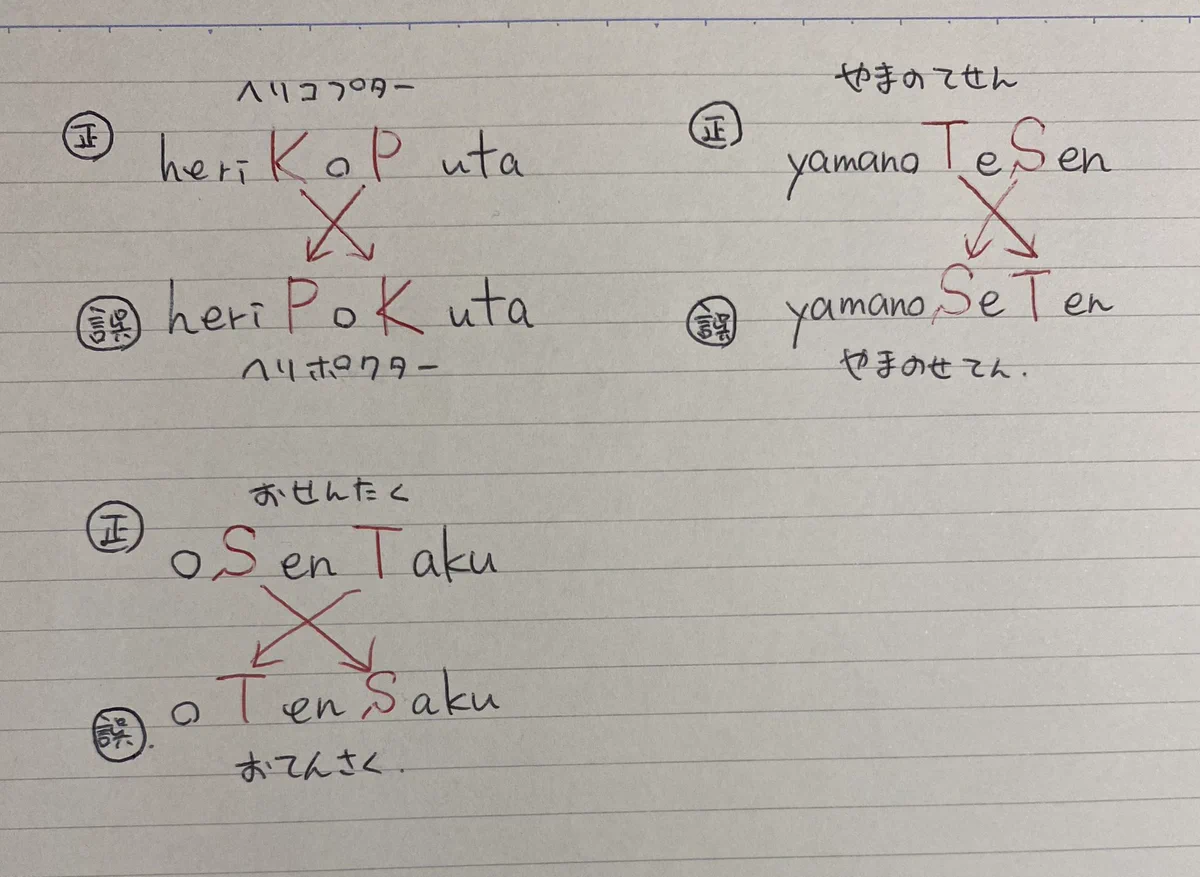 ヘリコプター
正 heri KoP uta
誤 heri PoK uta
ヘリポクター
やまのてせん
正 yamano TeSen
誤 yamano SeT en
やまのせてん.
おせんたく
正 oSen Taku
誤. o Ten Saku
おてんさく.